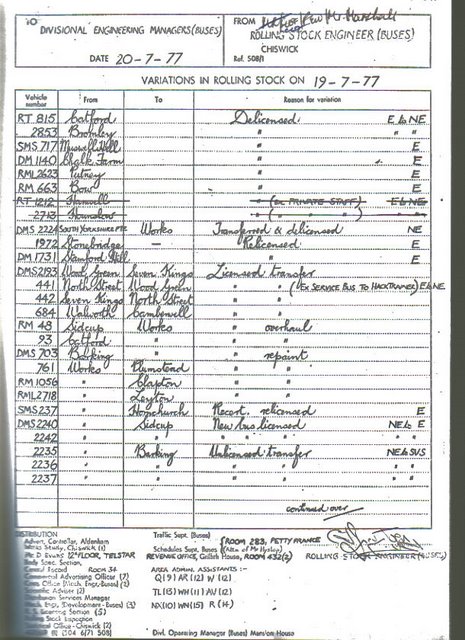 TO
DIVISIONAL ENGINEERING MANAGERS (BUSES)
DATE 20-7-77
FROM Mr Marshall
ROLLING STOCK ENGINEER (BUSES)
CHISWICK
Ref. 508/1
VARIATIONS IN ROLLING STOCK ON 19-7-77
Vehicle number From To Reason for variation
RT 815 Catford Delicensed E & NE
2853 Bromley " " "
SMS 717 Muswell Hill " E
DM 1140 Chalk Farm " E
RML 2623 Putney " E
RM 663 Bow " E
RT 1212 Hanwell " (EX PRIVATE STAFF) E & NE
2713 Hounslow " ( " " ) "
DMS 2224 SOUTH YORKSHIRE PTE Works Transferred & delicensed NE
1972 Stonebridge — Relicensed E
DM 1731 Stamford Hill " E
DMS 2193 Wood Green Seven Kings Licensed transfer
441 North Street Wood Green " " (EX SERVICE BUS TO HACK TRAINER) E & NE
442 Seven Kings North Street " "
684 Walworth Camberwell " "
RM 48 Sidcup Works " overhaul
93 Catford " " "
DMS 703 Barking " " repaint
761 Works Plumstead " "
RM 1056 " Clapton " "
RML 2718 " Leyton " "
SMS 237 " Hornchurch Recert. relicensed E
DMS 2240 " Sidcup New bus licensed NE & E
2242 " " " " " " "
2235 " Barking Unlicensed transfer NE & SUS
2236 " " " " "
2237 " " " " "
continued over
DISTRIBUTION
Advert. Controller, Aldenham
Works Study, Chiswick (1)
Mr D Evans 12th FLOOR, TELSTAR
Body Spec. Section,
Central Record ROOM 34
Commercial Advertising Officer (7)
Cons. Office (Mech. Engr. Buses) (2)
Scientific Adviser (2)
Distribution Services Manager
Mech. Engr. Development-Buses) (3)
R. S. Licensing Section (5)
Rolling Stock Inspection
Technical Office-Chiswick (2)
Traffic Supt. (Buses)
Schedules Supt. Buses (Attn. of Mr Hyslop) ROOM 283, PETTY FRANCE
REVENUE OFFICE, Griffith House, ROOM 432 (2)
AREA ADMIN. ASSISTANTS :-
Q (9) AR (12) W (12)
TL (13) WH (11) AV (12)
NX (10) WN (15) R (14)
Divl. Operating Manager (Buses) Mansion House
ROLLING STOCK ENGINEER (BUSES)